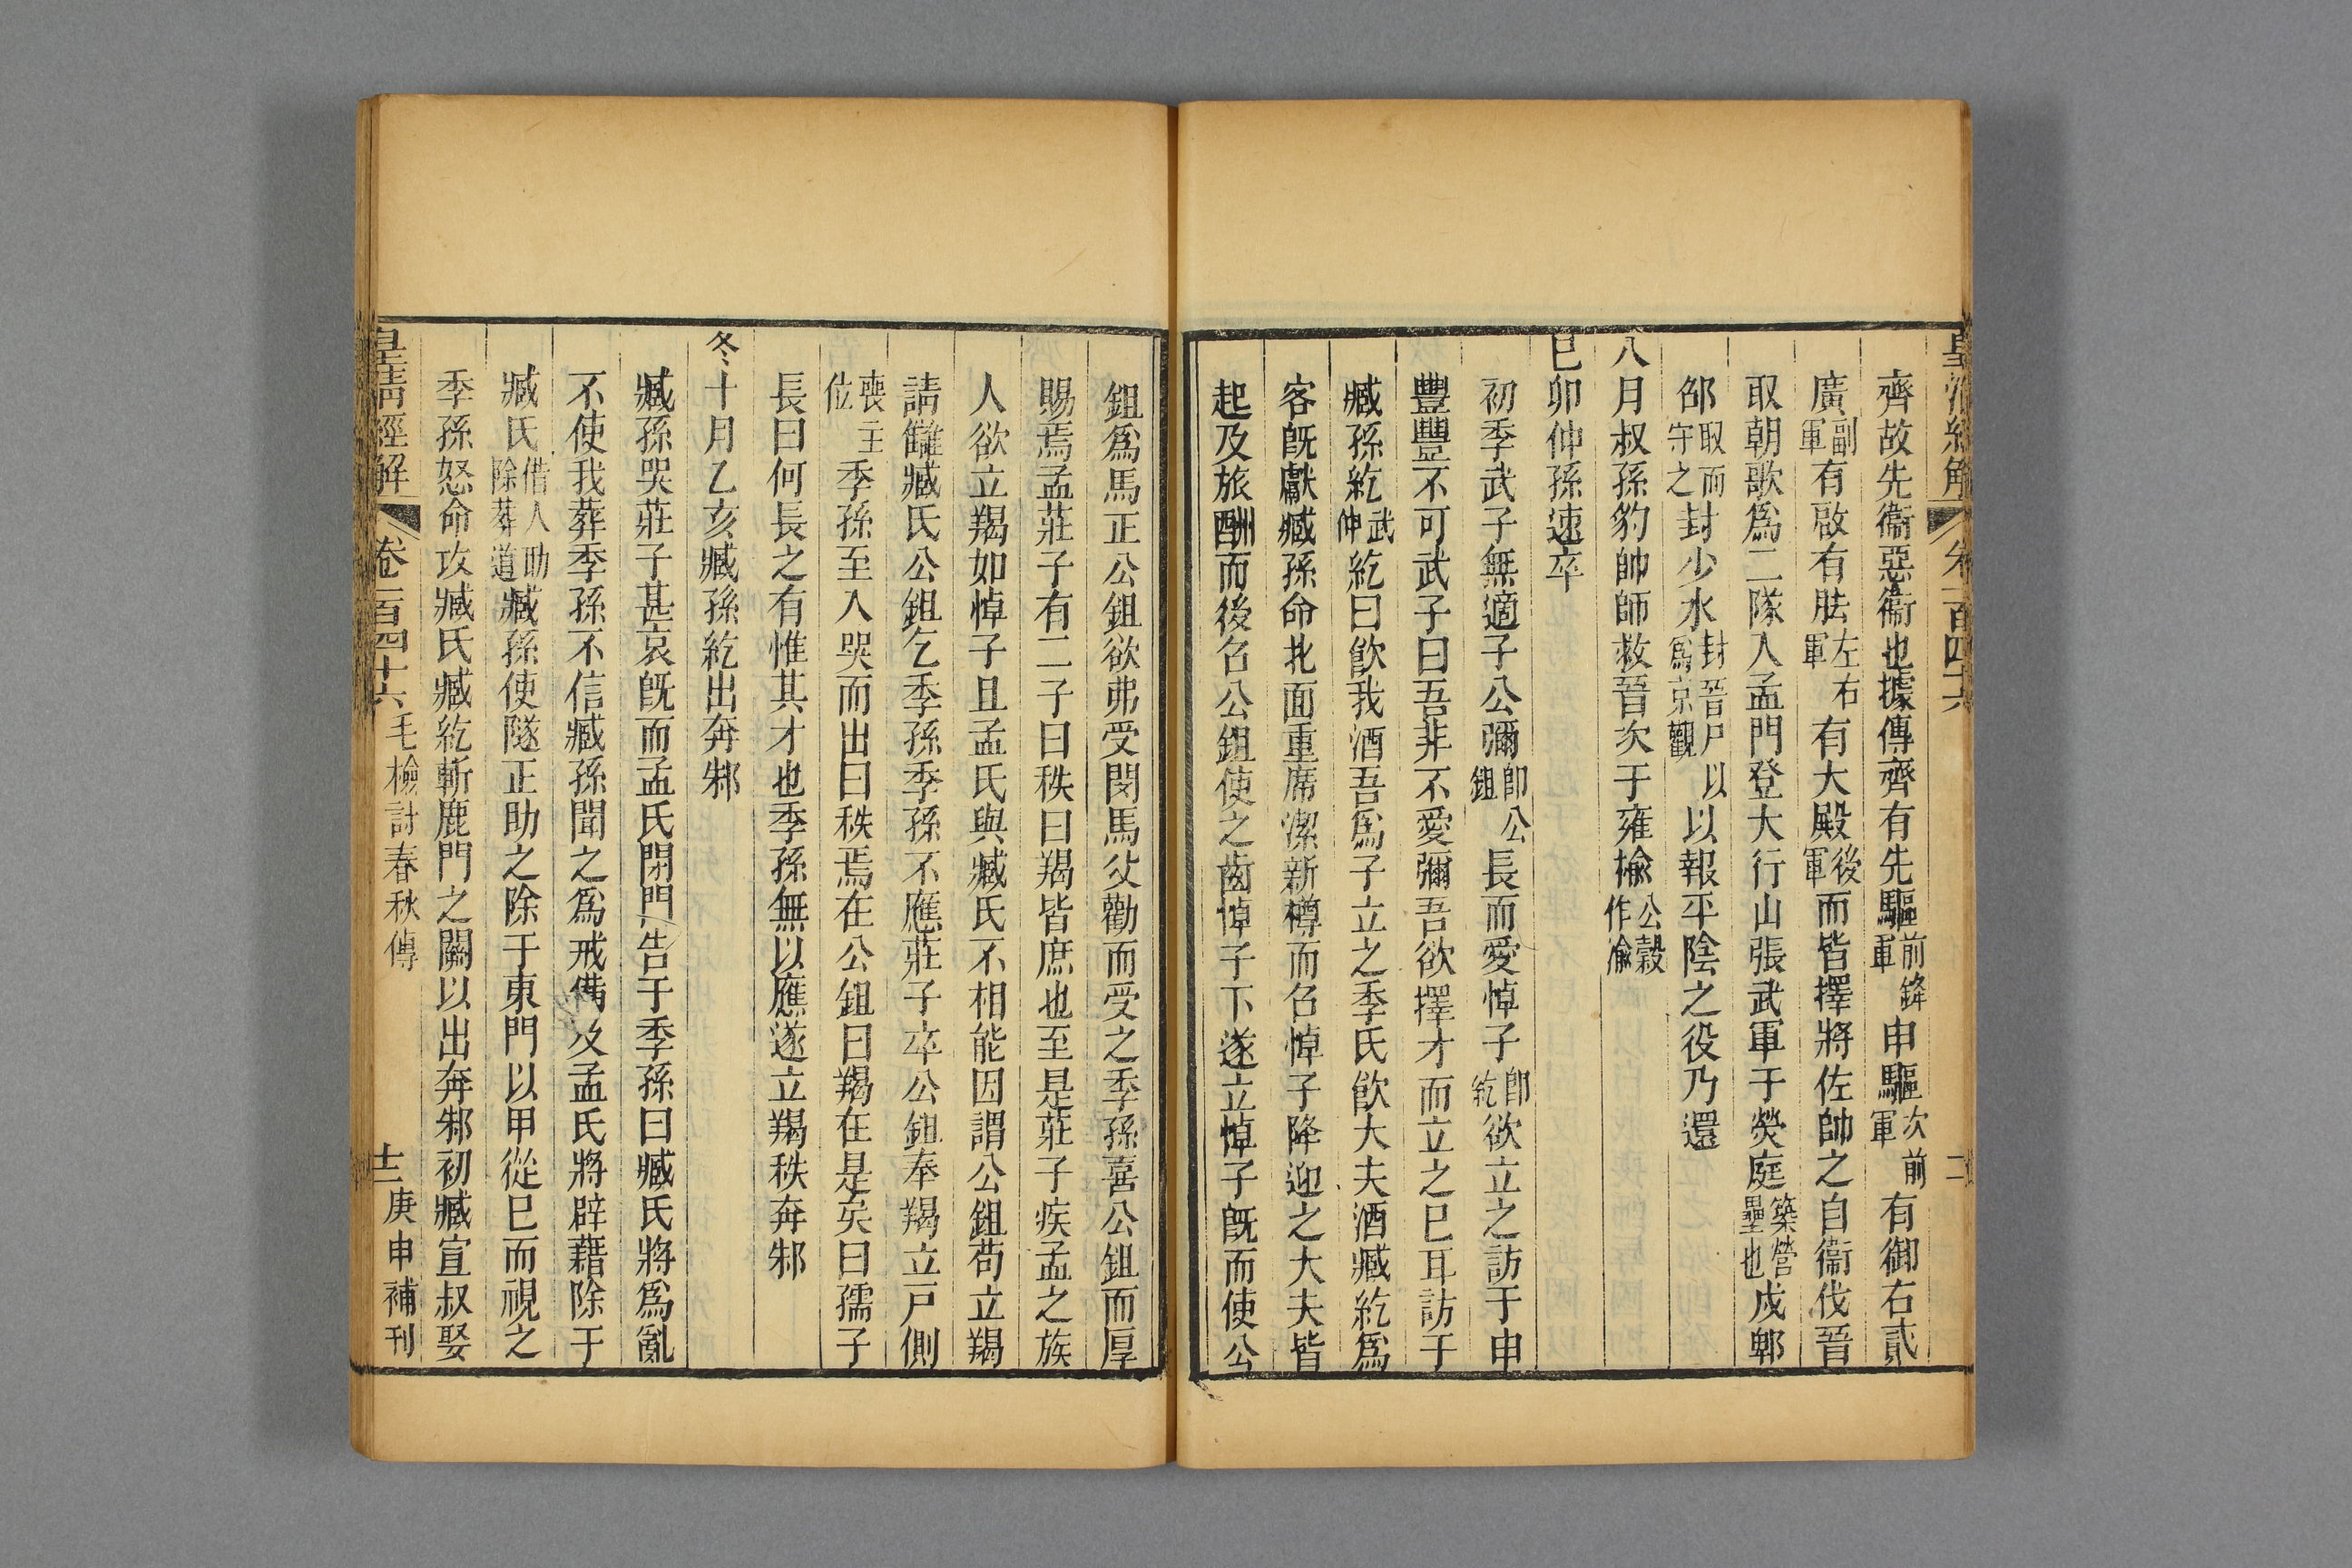 齊故先衞惡衞也據傳齊有先驅前鋒軍申驅次前軍有御右貳
廣副軍有啟有胠左右軍有大殿後軍而皆擇將佐帥之自衞伐晉
取朝歌爲二隊入孟門登大行山張武軍于熒庭築營壘也戍郫
邵取而守之封少水封晉尸以爲京觀以報平陰之役乃還
八月叔孫豹帥師救晉次于雍楡公穀作渝
已卯仲孫速卒
初季武子無適子公彌卽公鉏長而愛悼子卽紇欲立之訪于申
豐豐不可武子曰吾非不愛彌吾欲擇才而立之已耳訪于
臧孫紇武仲紇曰飮我酒吾爲子立之季氏飮大夫酒臧紇爲
客旣獻臧孫命北面重席潔新樽而召悼子降迎之大夫皆
起及旅酬而後召公鉏使之齒悼子下遂立悼子旣而使公
鉏爲馬正公鉏欲弗受閔馬父勸而受之季孫喜公鉏而厚
賜焉孟莊子有二子曰秩曰羯皆庶也至是莊子疾孟之族
人欲立羯如悼子且孟氏與臧氏不相能因謂公鉏苟立羯
請讎臧氏公鉏乞季孫季孫不應莊子卒公鉏奉羯立戸側
喪主位季孫至入哭而出曰秩焉在公鉏曰羯在是矣曰孺子
長曰何長之有惟其才也季孫無以應遂立羯秩奔邾
冬十月乙亥臧孫紇出奔邾
臧孫哭莊子甚哀旣而孟氏閉門告于季孫曰臧氏將爲亂
不使我葬季孫不信臧孫聞之爲戒備及孟氏將辟藉除于
臧氏借人助除葬道臧孫使隧正助之除于東門以甲從已而視之
季孫怒命攻臧氏臧紇斬鹿門之關以出奔邾初臧宣叔娶
皇清經解 卷一百四十六 毛檢討春秋傳 十二 庚申補刊